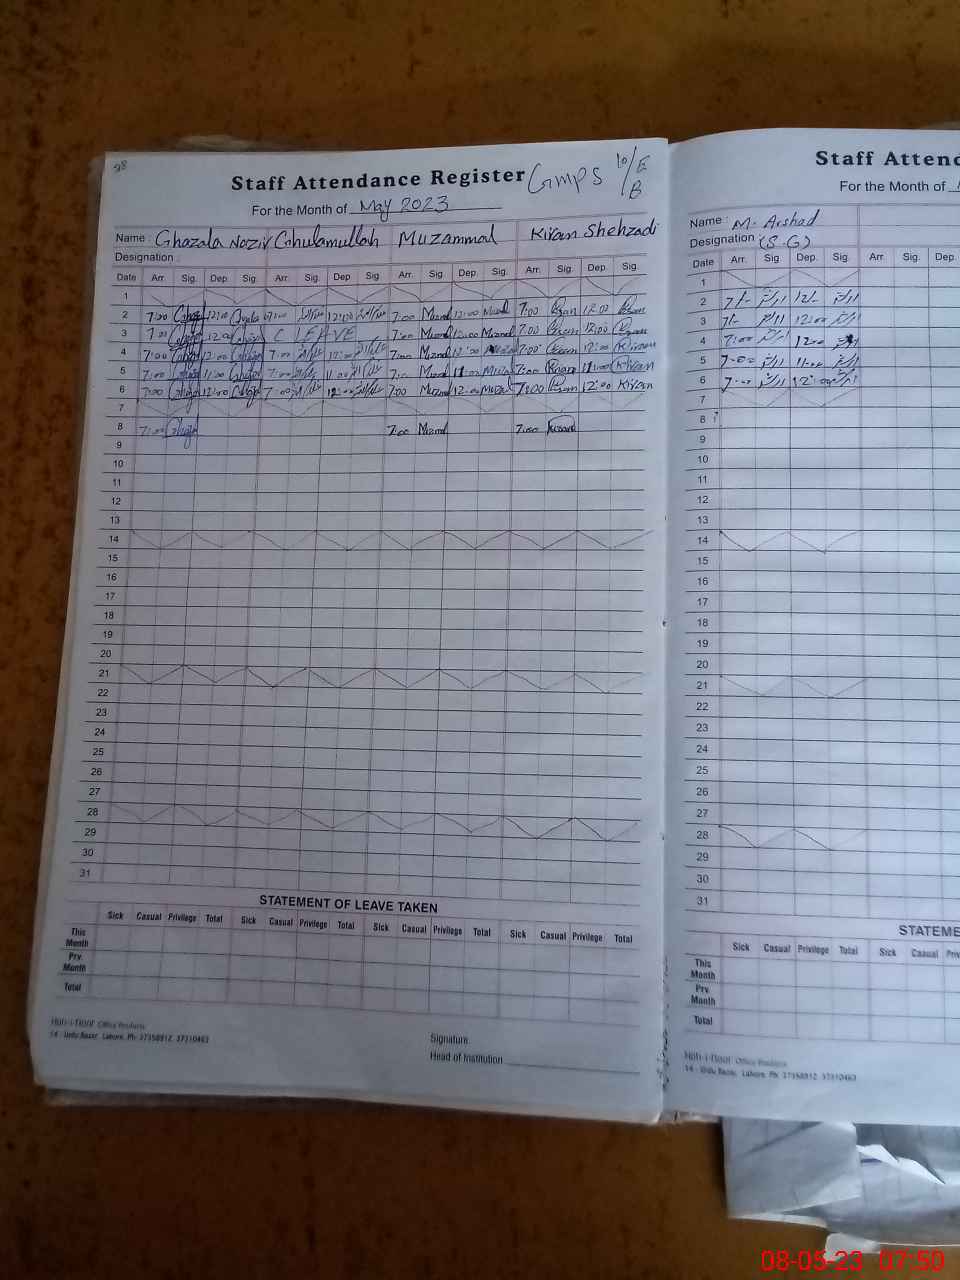 98
Staff Attendance Register GMPS 10/EB
For the Month of May 2023
Name: Ghazala Nazir Ghulamullah Muzammal Kiran Shehzadi
Designation:
Date Arr. Sig. Dep. Sig. Arr. Sig. Dep. Sig. Arr. Sig. Dep. Sig. Arr. Sig. Dep. Sig.
1
2 7:00 12:00 7:00 12:00 7:00 12:00 7:00 12:00
3 7:00 12:00 C LEAVE 7:00 12:00 7:00 12:00
4 7:00 12:00 7:00 12:00 7:00 12:00 7:00 12:00 Kiran
5 7:00 11:00 7:00 11:00 7:00 11:00 7:00 11:00 Kiran
6 7:00 12:00 7:00 12:00 7:00 12:00 7:00 12:00 Kiran
7
8 7:00 7:00 7:00
9
10
11
12
13
14
15
16
17
18
19
20
21
22
23
24
25
26
27
28
29
30
31
STATEMENT OF LEAVE TAKEN
Sick Casual Privilege Total Sick Casual Privilege Total Sick Casual Privilege Total Sick Casual Privilege Total
This Month
Prv. Month
Total
Office Products
14 - Urdu Bazar, Lahore. Ph: 37358912 37310463
Signature
Head of Institution
Staff Attend
For the Month of
Name: M. Arshad
Designation: (S.G)
Date Arr. Sig. Dep. Sig. Arr. Sig. Dep.
1
2 7/- 12/-
3 7/- 12:00
4 7:00 12:00
5 7:00 11:00
6 7:00 12:00
7
8
9
10
11
12
13
14
15
16
17
18
19
20
21
22
23
24
25
26
27
28
29
30
31
STATEME
Sick Casual Privilege Total Sick Casual Priv
This Month
Prv. Month
Total
Office Products
14 - Urdu Bazar, Lahore. Ph: 37358912 37310463
08-05-23 07:50